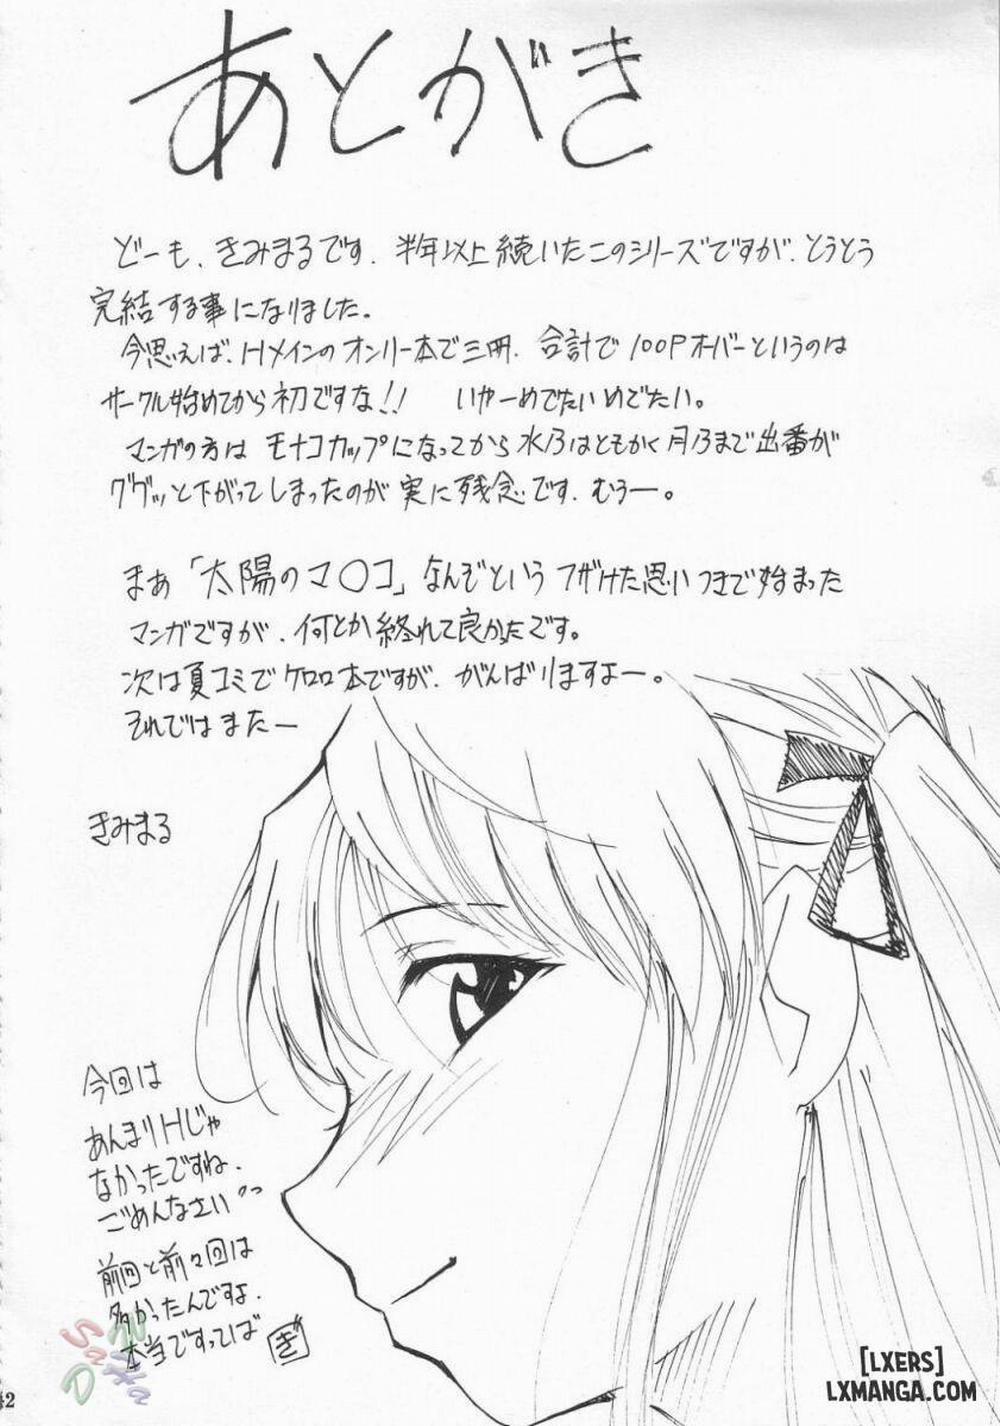 あとがき
どーも、きみまるです。半年以上続いたこのシリーズですが、とうとう
完結する事になりました。
今思えば、Hメインのオンリー本で三冊、合計で100Pオーバーというのは
サークル始めてから初ですな!! いやーめでたいめでたい。
マンガの方はモナコカップになってから水乃はともかく月乃まで出番が
ググッと下がってしまったのが実に残念です。むぅー。
まぁ「太陽のマ○コ」なんぞというフザけた思いつきで始まった
マンガですが、何とか終れて良かったです。
次は夏コミでケロロ本ですが、がんばりますよー。
それではまたー
きみまる
今回は
あんまりHじゃ
なかったですね、
ごめんなさいっ
前回と前々回は
多かったんですよ、
本当ですってば
ぎ
SaHa
D
42
[LXERS]
LXMANGA.COM